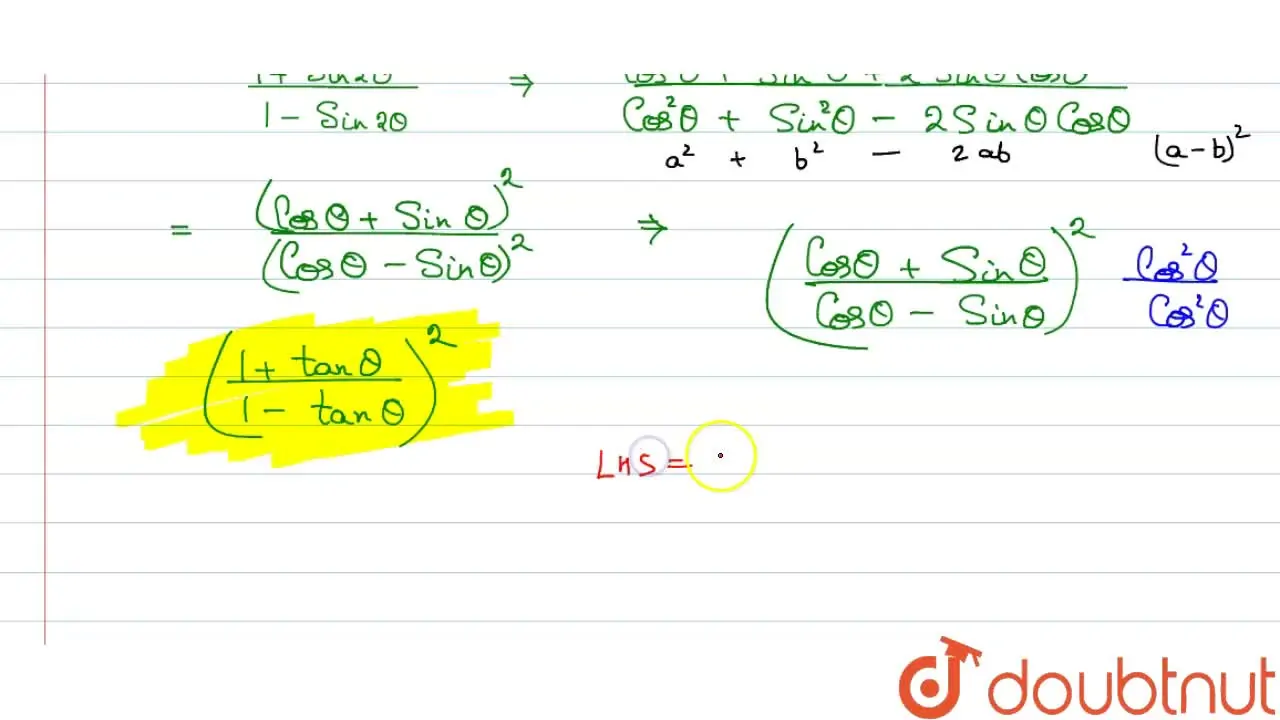 1 + Sin2θ ⇒ Cos²θ + Sin²θ + 2 Sinθ Cosθ
1 - Sin2θ Cos²θ + Sin²θ - 2 Sinθ Cosθ
a² + b² - 2ab (a-b)²
= (Cosθ + Sinθ)² / (Cosθ - Sinθ)² ⇒ (Cosθ + Sinθ / Cosθ - Sinθ)² Cos²θ / Cos²θ
(1 + tanθ / 1 - tanθ)²
LHS =
doubtnut